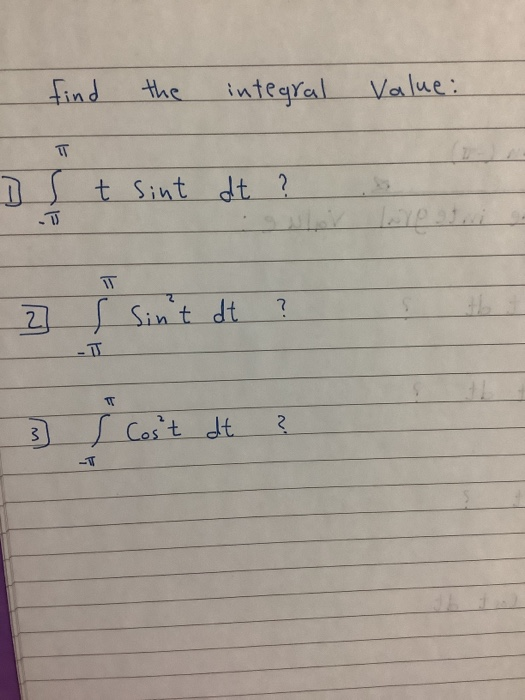 find the integral Value:
1) ∫_{-π}^{π} t sint dt ?
2) ∫_{-π}^{π} Sin²t dt ?
3) ∫_{-π}^{π} Cos²t dt ?